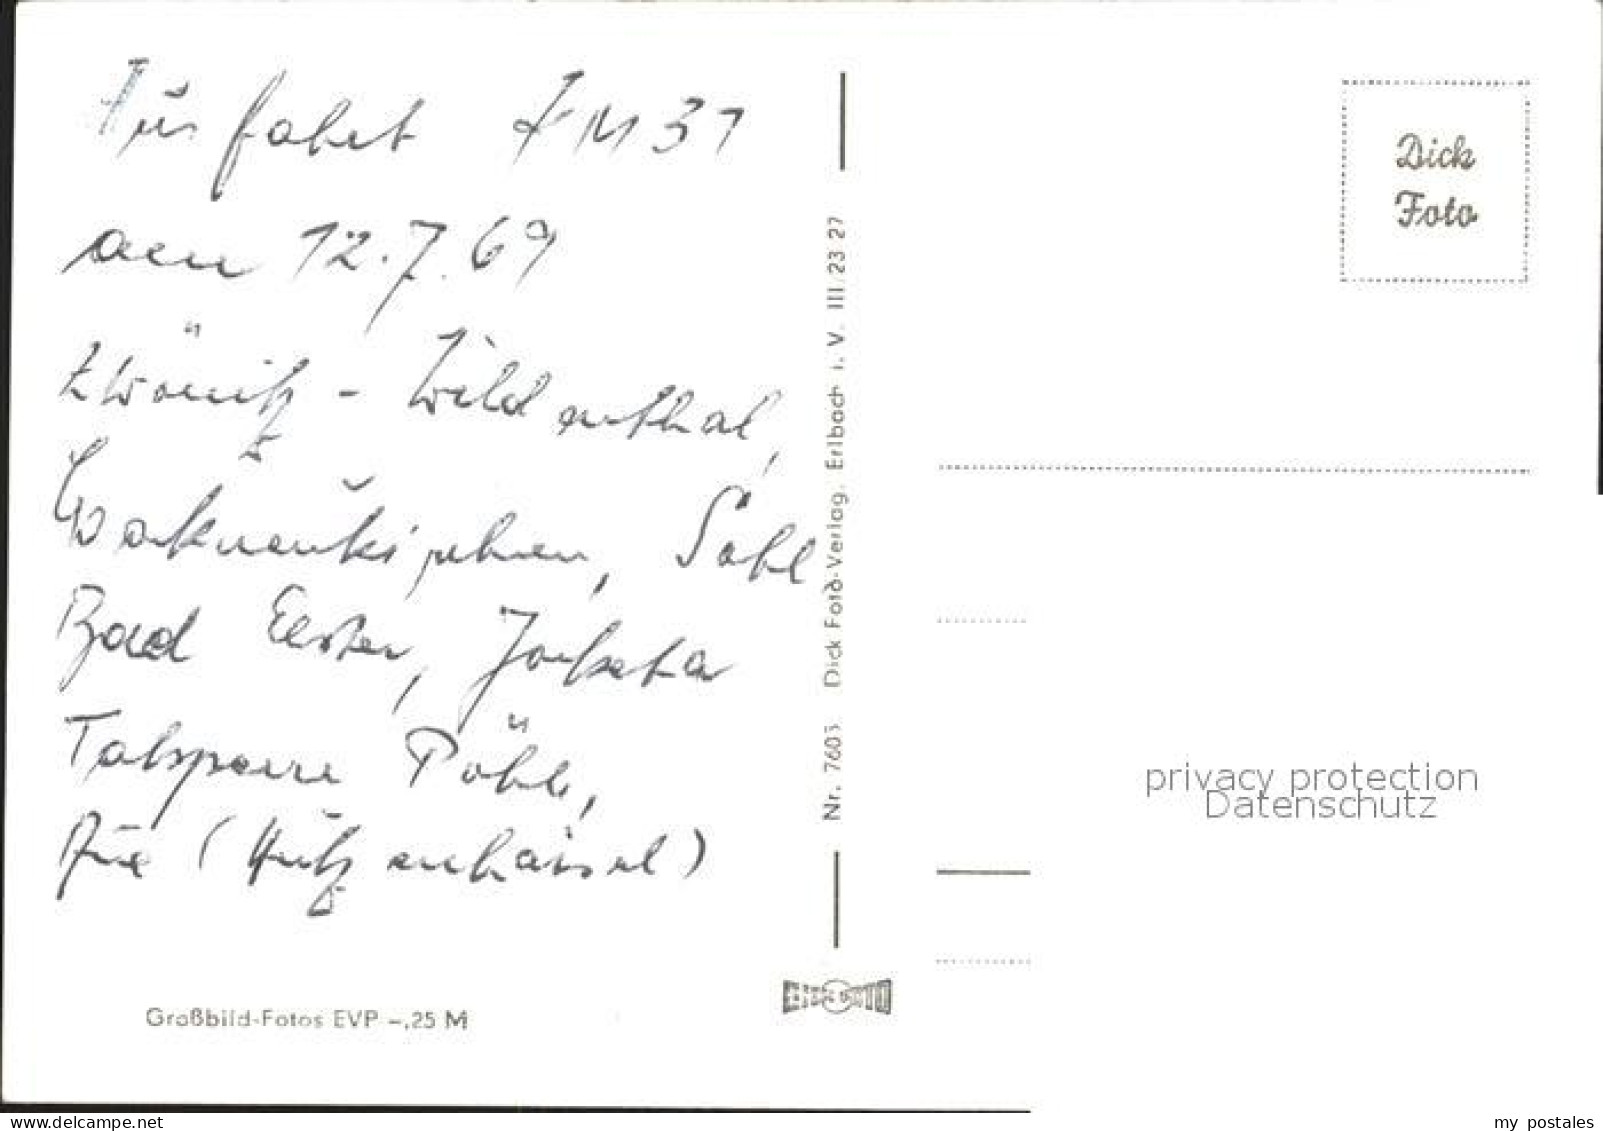 Ausfahrt FM 31
den 12.7.69
Zwönitz - Wildenthal,
Markneukirchen, Sohl
Bad Elster, Jocketa
Talsperre Pöhl,
Aue (Hutzenhäusel)
Großbild-Fotos EVP -,25 M
Nr. 7603 Dick Foto-Verlag, Erlbach i. V. III/23 27
Dick
Foto
privacy protection
Datenschutz
www.delcampe.net
my postales